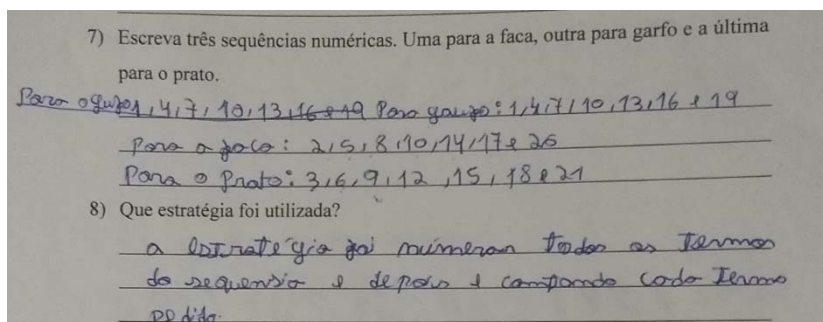 7) Escreva três sequências numéricas. Uma para a faca, outra para garfo e a última
para o prato.
Para o garfo 1, 4, 7, 10, 13, 16 e 19 Para garfo: 1, 4, 7, 10, 13, 16 e 19
Para a faca: 2, 5, 8, 10, 14, 17 e 20
Para o Prato: 3, 6, 9, 12, 15, 18 e 21
8) Que estratégia foi utilizada?
a estratégia foi numeran todos os Termos
da sequensia e depois e campando cada Termo
pedido.